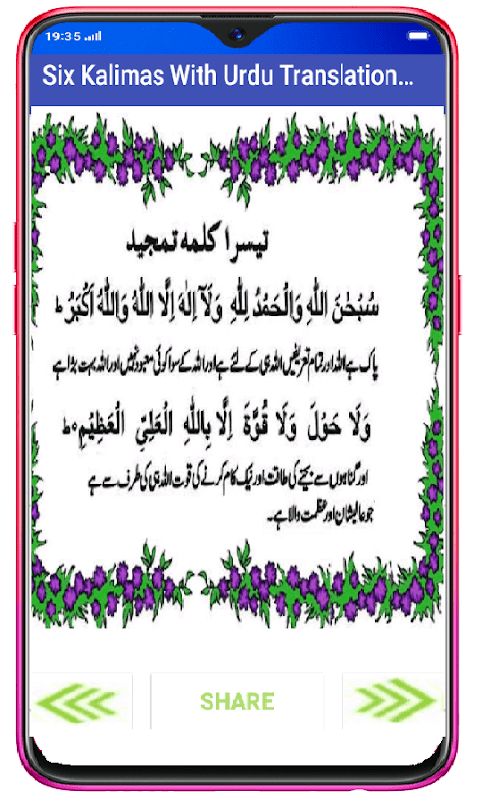 19:35
Six Kalimas With Urdu Translation...
تیسرا کلمہ تمجید
سُبْحٰنَ اللّٰهِ وَالْحَمْدُ لِلّٰهِ وَلَآ اِلٰهَ اِلَّا اللّٰهُ وَاللّٰهُ اَكْبَرُ ط
پاک ہے اللہ اور تمام تعریفیں اللہ ہی کے لئے ہے اور اللہ کے سوا کوئی معبود نہیں اور اللہ بہت بڑا ہے
وَلَا حَوْلَ وَلَا قُوَّةَ اِلَّا بِاللّٰهِ الْعَلِيِّ الْعَظِيْمِ ط
اور گناہوں سے بچنے کی طاقت اور نیک کام کرنے کی قوت اللہ ہی کی طرف سے ہے
جو عالیشان اور عظمت والا ہے۔
SHARE